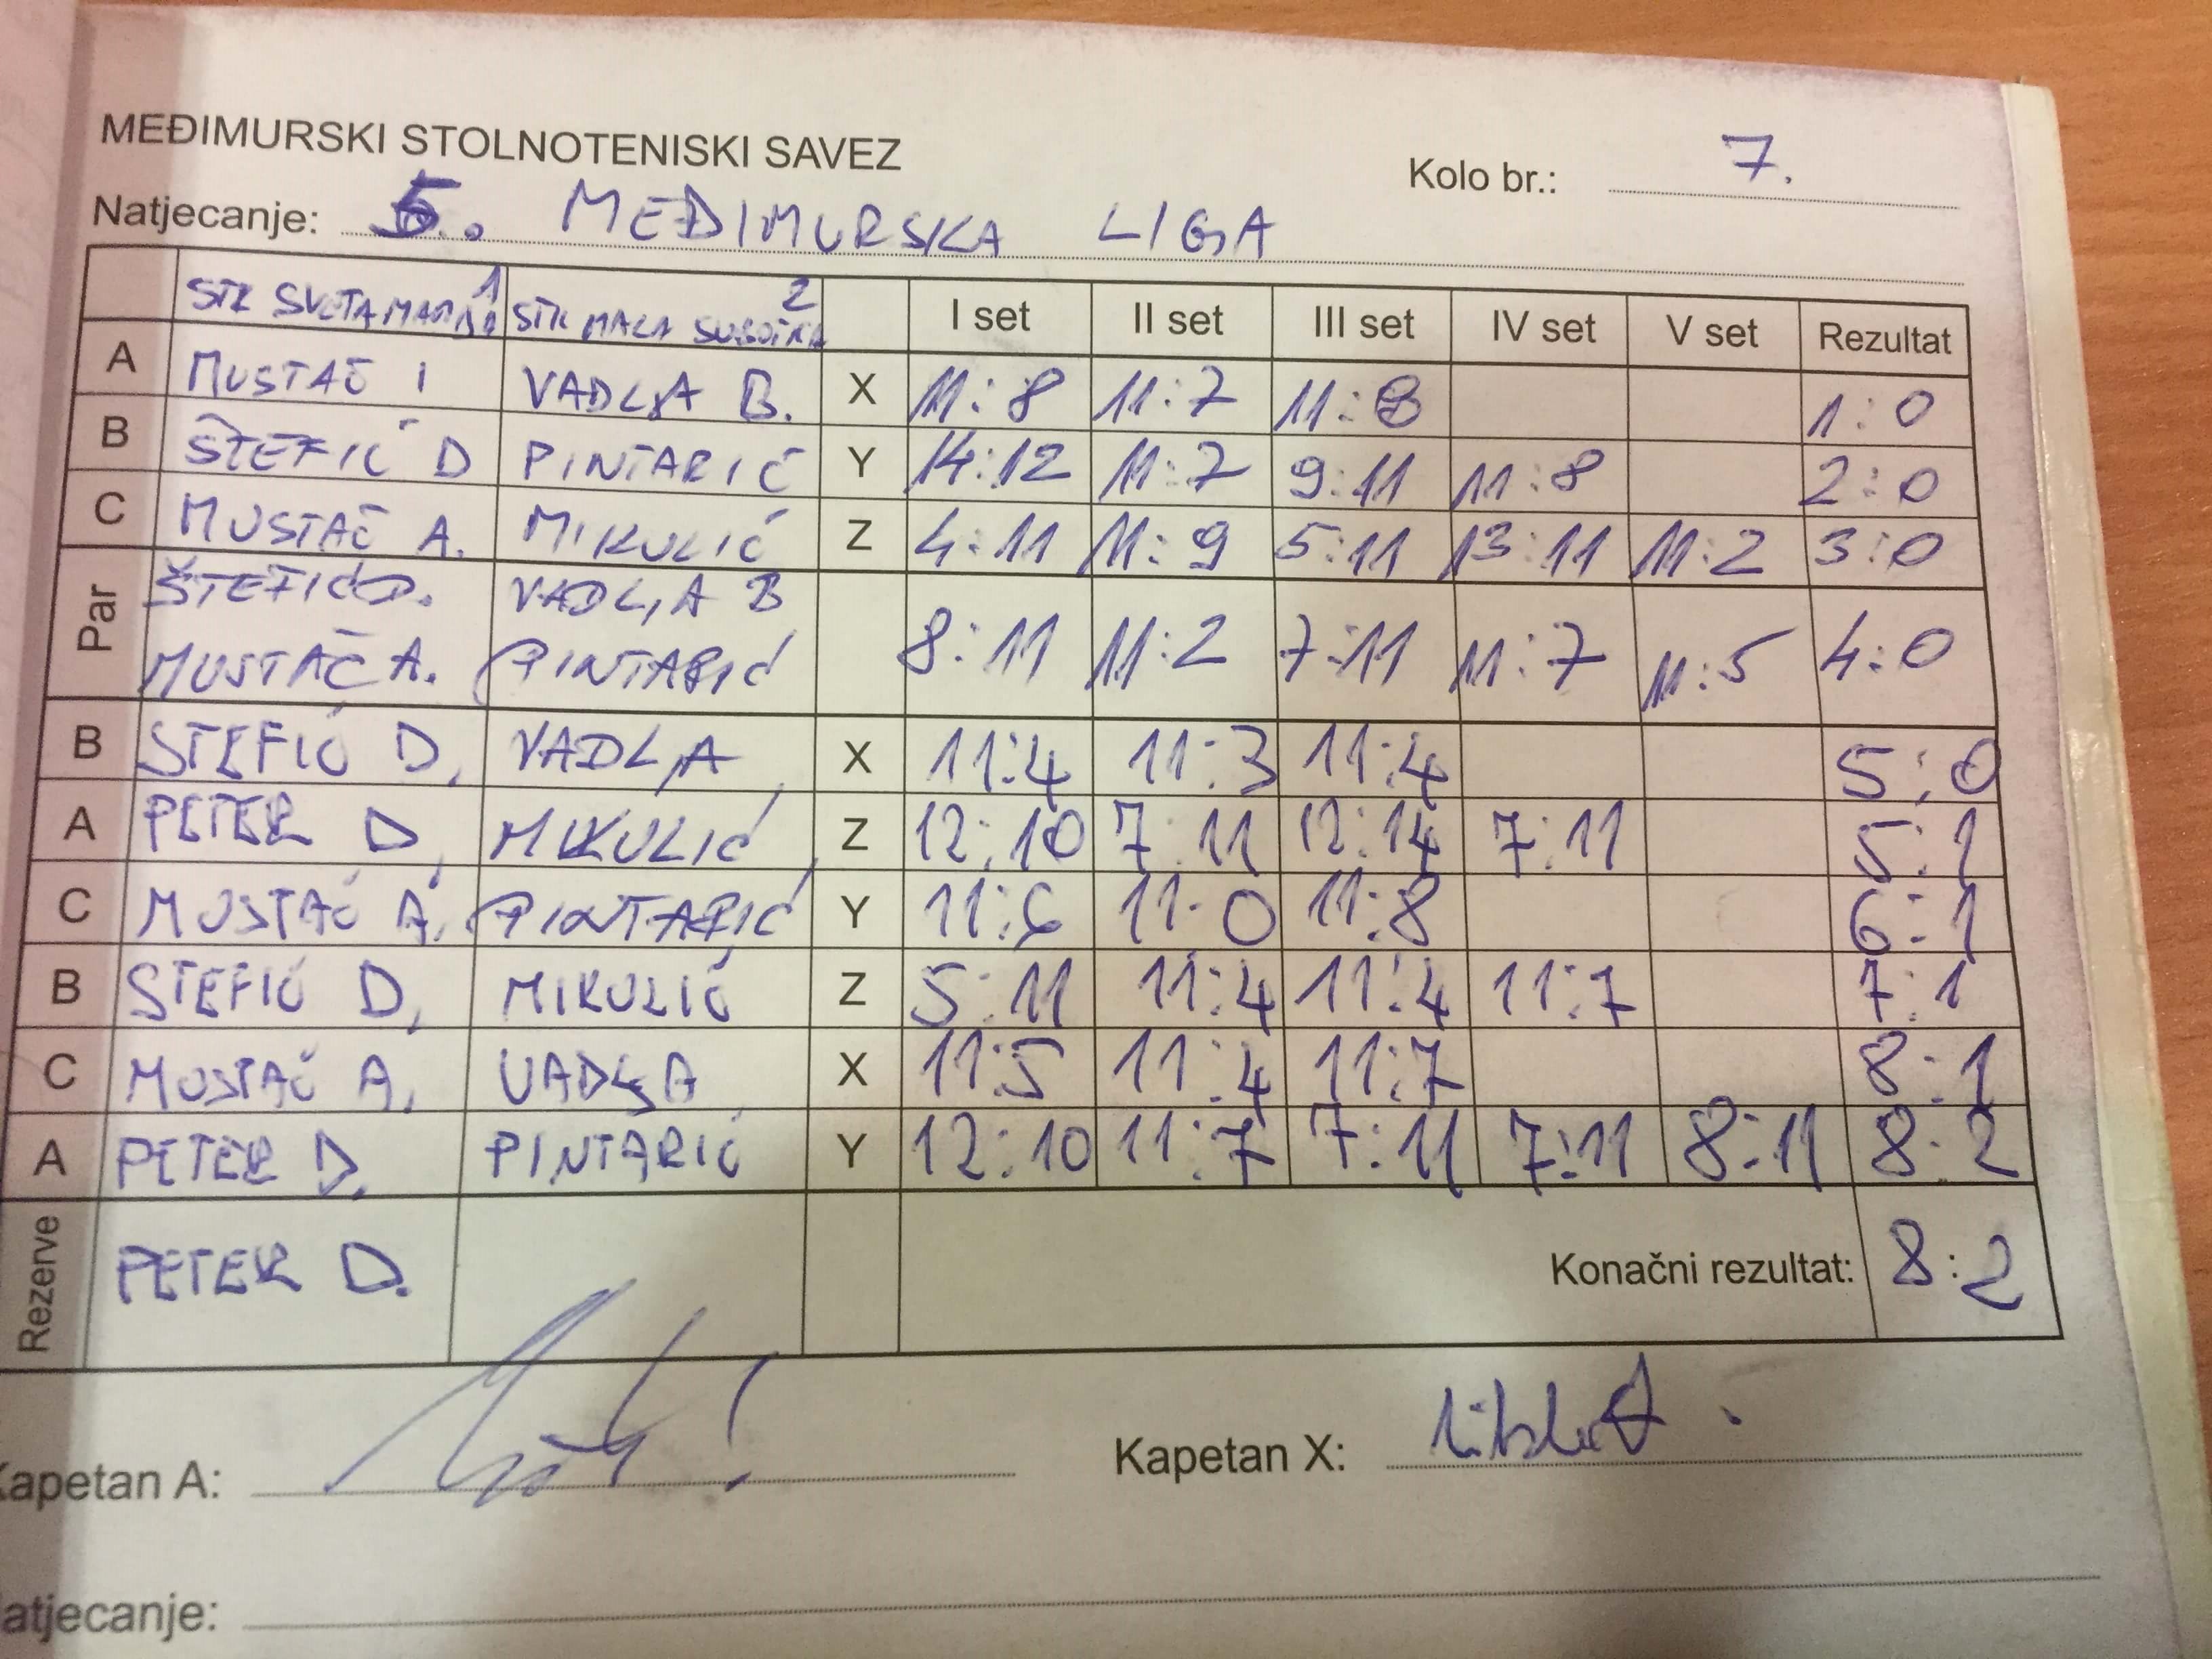 MEĐIMURSKI STOLNOTENISKI SAVEZ
Kolo br.: 7.
Natjecanje: 5. MEĐIMURSKA LIGA
STK SVETA MARIJA 1 STK MALA SUBOTICA 2 I set II set III set IV set V set Rezultat
A MUSTAČ I VADLJA B. X 11:8 11:7 11:8 1:0
B ŠTEFIĆ D PINTARIĆ Y 14:12 11:7 9:11 11:8 2:0
C MUSTAČ A. MIKULIĆ Z 4:11 11:9 5:11 13:11 11:2 3:0
Par ŠTEFIĆ D. VADLJA B
MUSTAČ A. PINTARIĆ 8:11 11:2 7:11 11:7 11:5 4:0
B STEFIĆ D. VADLJA X 11:4 11:3 11:4 5:0
A PETER D. MIKULIĆ Z 12:10 7:11 12:14 7:11 5:1
C MUSTAČ A. PINTARIĆ Y 11:6 11:0 11:8 6:1
B STEFIĆ D. MIKULIĆ Z 5:11 11:4 11:4 11:7 7:1
C MUSTAČ A. VADLJA X 11:5 11:4 11:7 8:1
A PETER D. PINTARIĆ Y 12:10 11:7 7:11 7:11 8:11 8:2
Rezerve PETER D. Konačni rezultat: 8:2
Kapetan A: Kapetan X:
atjecanje: